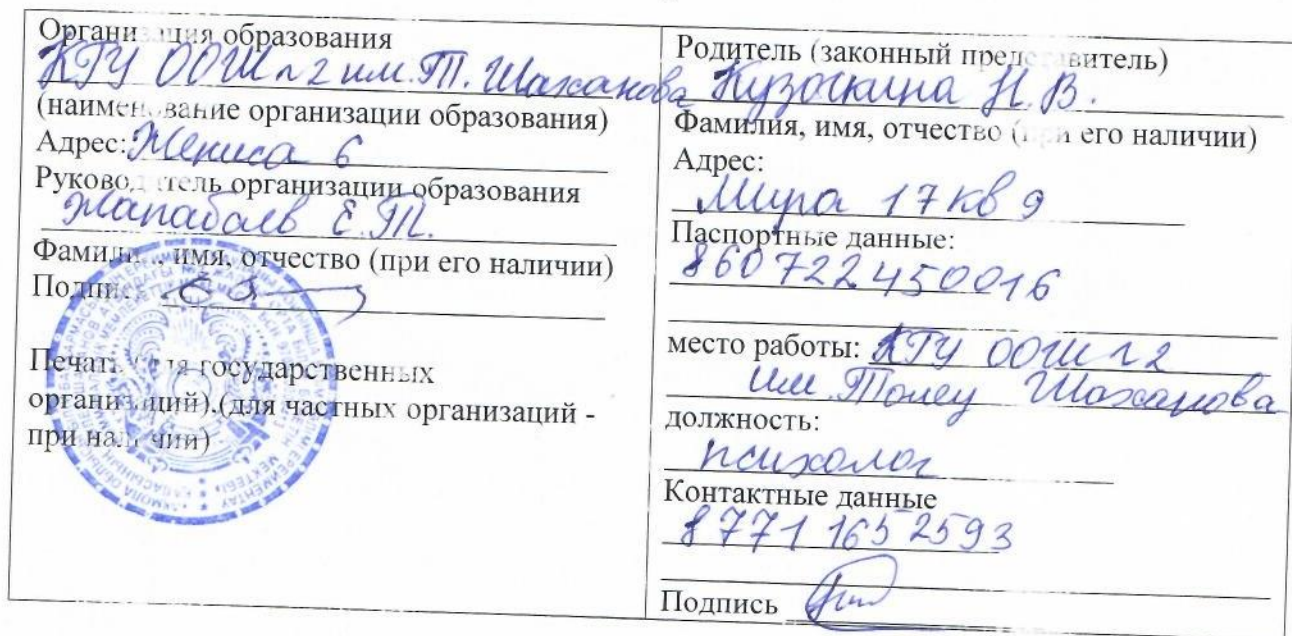 Организация образования
КГУ ООШ №2 им. Т. Шаханова
(наименование организации образования)
Адрес: Жениса 6
Руководитель организации образования
Жапабаев Е.Т.
Фамилия, имя, отчество (при его наличии)
Подпись
Печать (для государственных
организаций).(для частных организаций -
при наличии)
Родитель (законный представитель)
Кузочкина Н.В.
Фамилия, имя, отчество (при его наличии)
Адрес:
Мира 17 кв 9
Паспортные данные:
860722450016
место работы: КГУ ООШ №2
им Толеу Шаханова
должность:
психолог
Контактные данные
8771 165 2593
Подпись